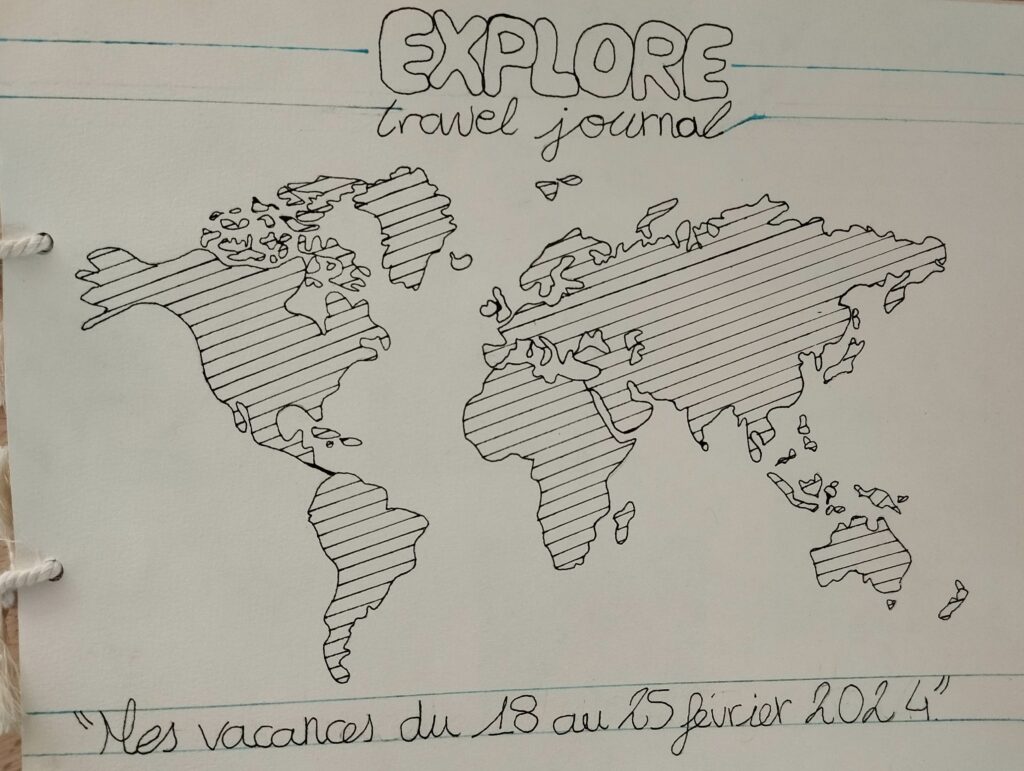 EXPLORE
travel journal
"Mes vacances du 18 au 25 février 2024."